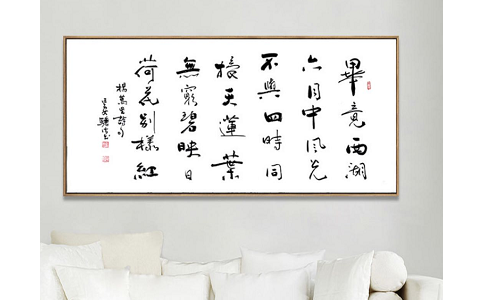 畢竟西湖
六月中風光
不與四時同
接天蓮葉
無窮碧映日
荷花別樣紅
楊萬里詩